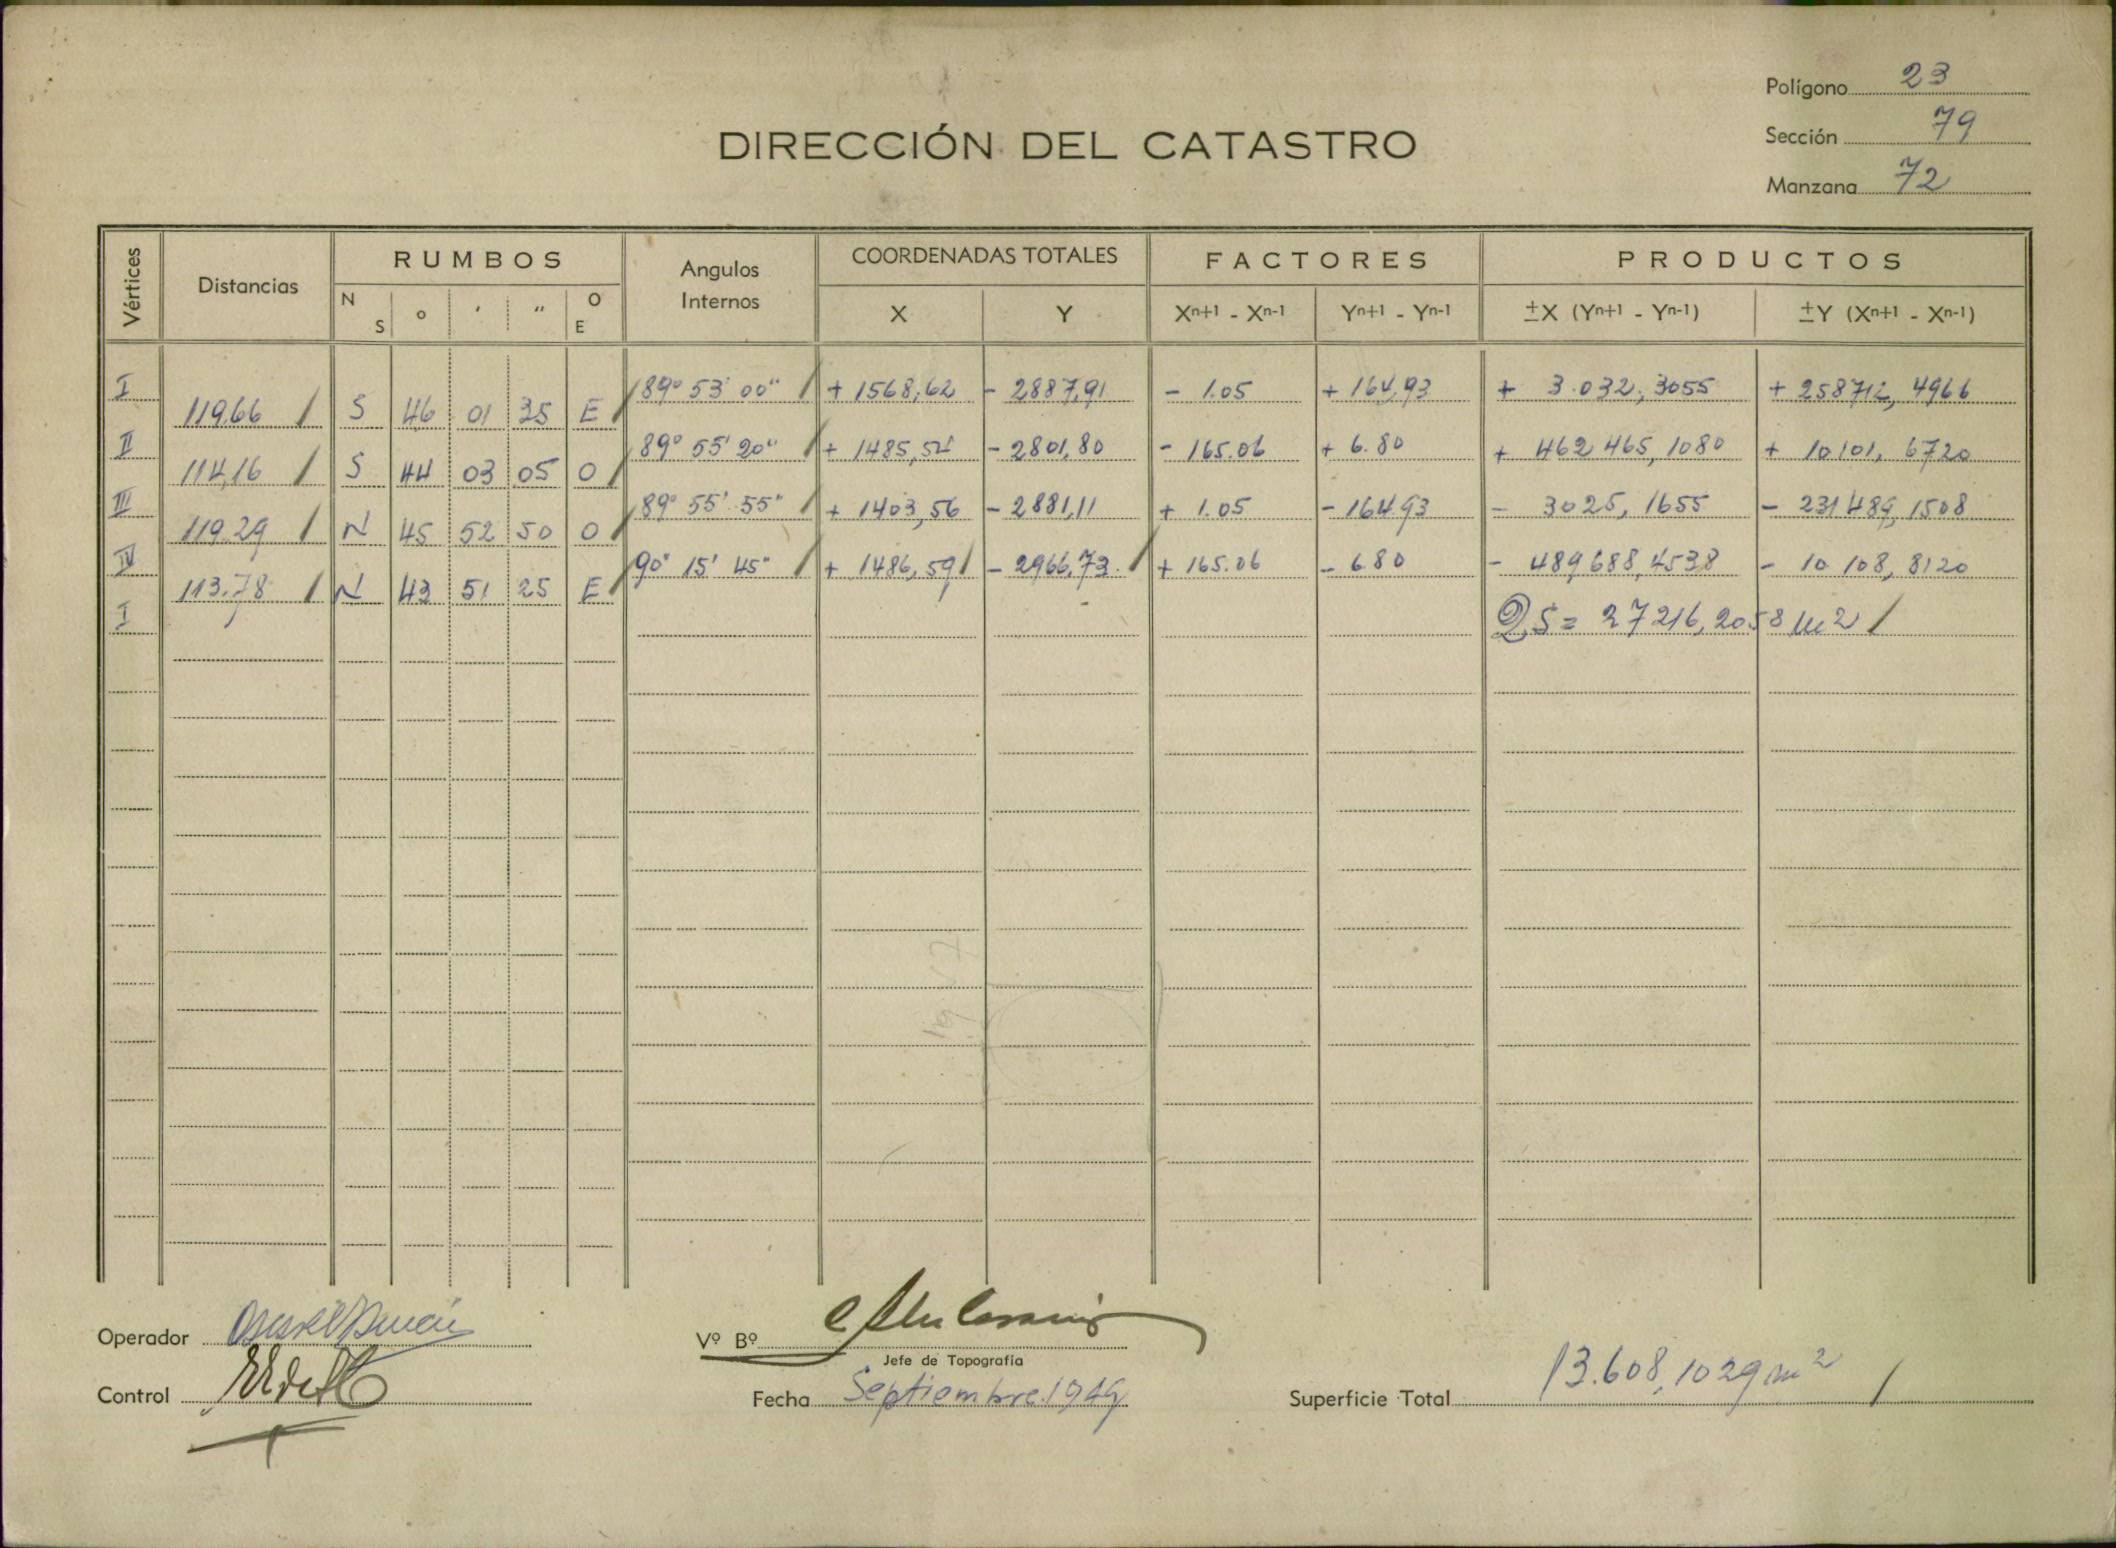 Polígono 23
Sección 79
Manzana 72
DIRECCIÓN DEL CATASTRO
Vértices Distancias RUMBOS Angulos Internos COORDENADAS TOTALES FACTORES PRODUCTOS
N S ° ' " O E X Y Xn+1 - Xn-1 Yn+1 - Yn-1 ±X (Yn+1 - Yn-1) ±Y (Xn+1 - Xn-1)
I 89° 53' 00" + 1568,62 - 2887,91 - 1.05 + 164,93 + 3.032,3055 + 258712,4966
119,66 S 46 01 35 E
II 89° 55' 20" + 1485,51 - 2801,80 - 165.06 + 6.80 + 462 465,1080 + 10101,6720
114,16 S 44 03 05 O
III 89° 55' 55" + 1403,56 - 2881,11 + 1.05 - 164.93 - 3025,1655 - 231489,1508
119.29 N 45 52 50 O
IV 90° 15' 45" + 1486,59 - 2966,73 + 165.06 - 6.80 - 489688,4538 - 10 108,8120
113.78 N 43 51 25 E
I 2S = 27216,2058 m2
Operador
Vº Bº
Jefe de Topografía
Control
Fecha Septiembre 1949
Superficie Total 13.608,1029 m2